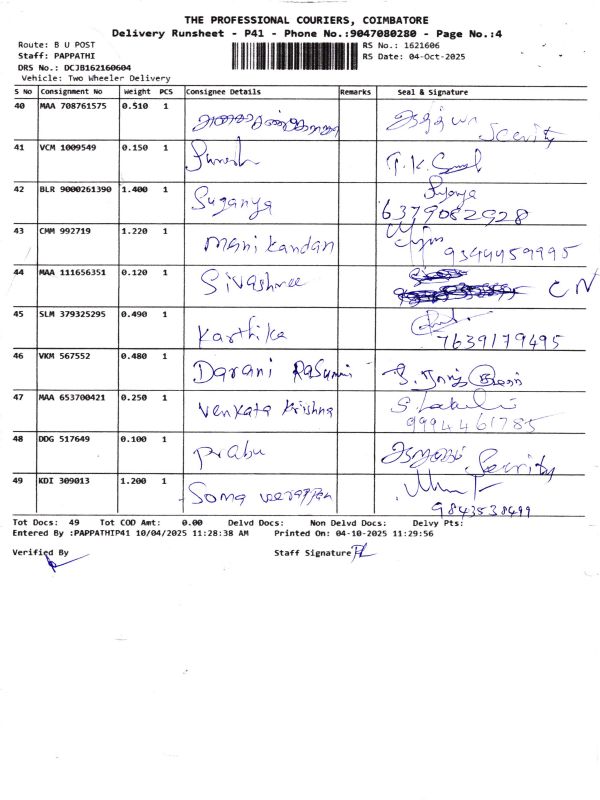 THE PROFESSIONAL COURIERS, COIMBATORE
Delivery Runsheet - P41 - Phone No.:9047080280 - Page No.:4
Route: B U POST
RS No.: 1621606
Staff: PAPPATHI
RS Date: 04-Oct-2025
DRS No.: DCJB162160604
Vehicle: Two Wheeler Delivery
S No Consignment No Weight PCS Consignee Details Remarks Seal & Signature
40 MAA 708761575 0.510 1
41 VCM 1009549 0.150 1 Suresh T.K.
42 BLR 9000261390 1.400 1 Suganya
6379082928
43 CMM 992719 1.220 1 Mani kandan 9344459995
44 MAA 111656351 0.120 1 Sivashree CN
45 SLM 379325295 0.490 1 Karthika
7639179495
46 VKM 567552 0.480 1 Darani
47 MAA 653700421 0.250 1 Venkata Krishna
9994461785
48 DDG 517649 0.100 1 Prabu
49 KDI 309013 1.200 1 Soma veerappan
9843538499
Tot Docs: 49 Tot COD Amt: 0.00 Delvd Docs: Non Delvd Docs: Delvy Pts:
Entered By :PAPPATHIP41 10/04/2025 11:28:38 AM Printed On: 04-10-2025 11:29:56
Verified By Staff Signature